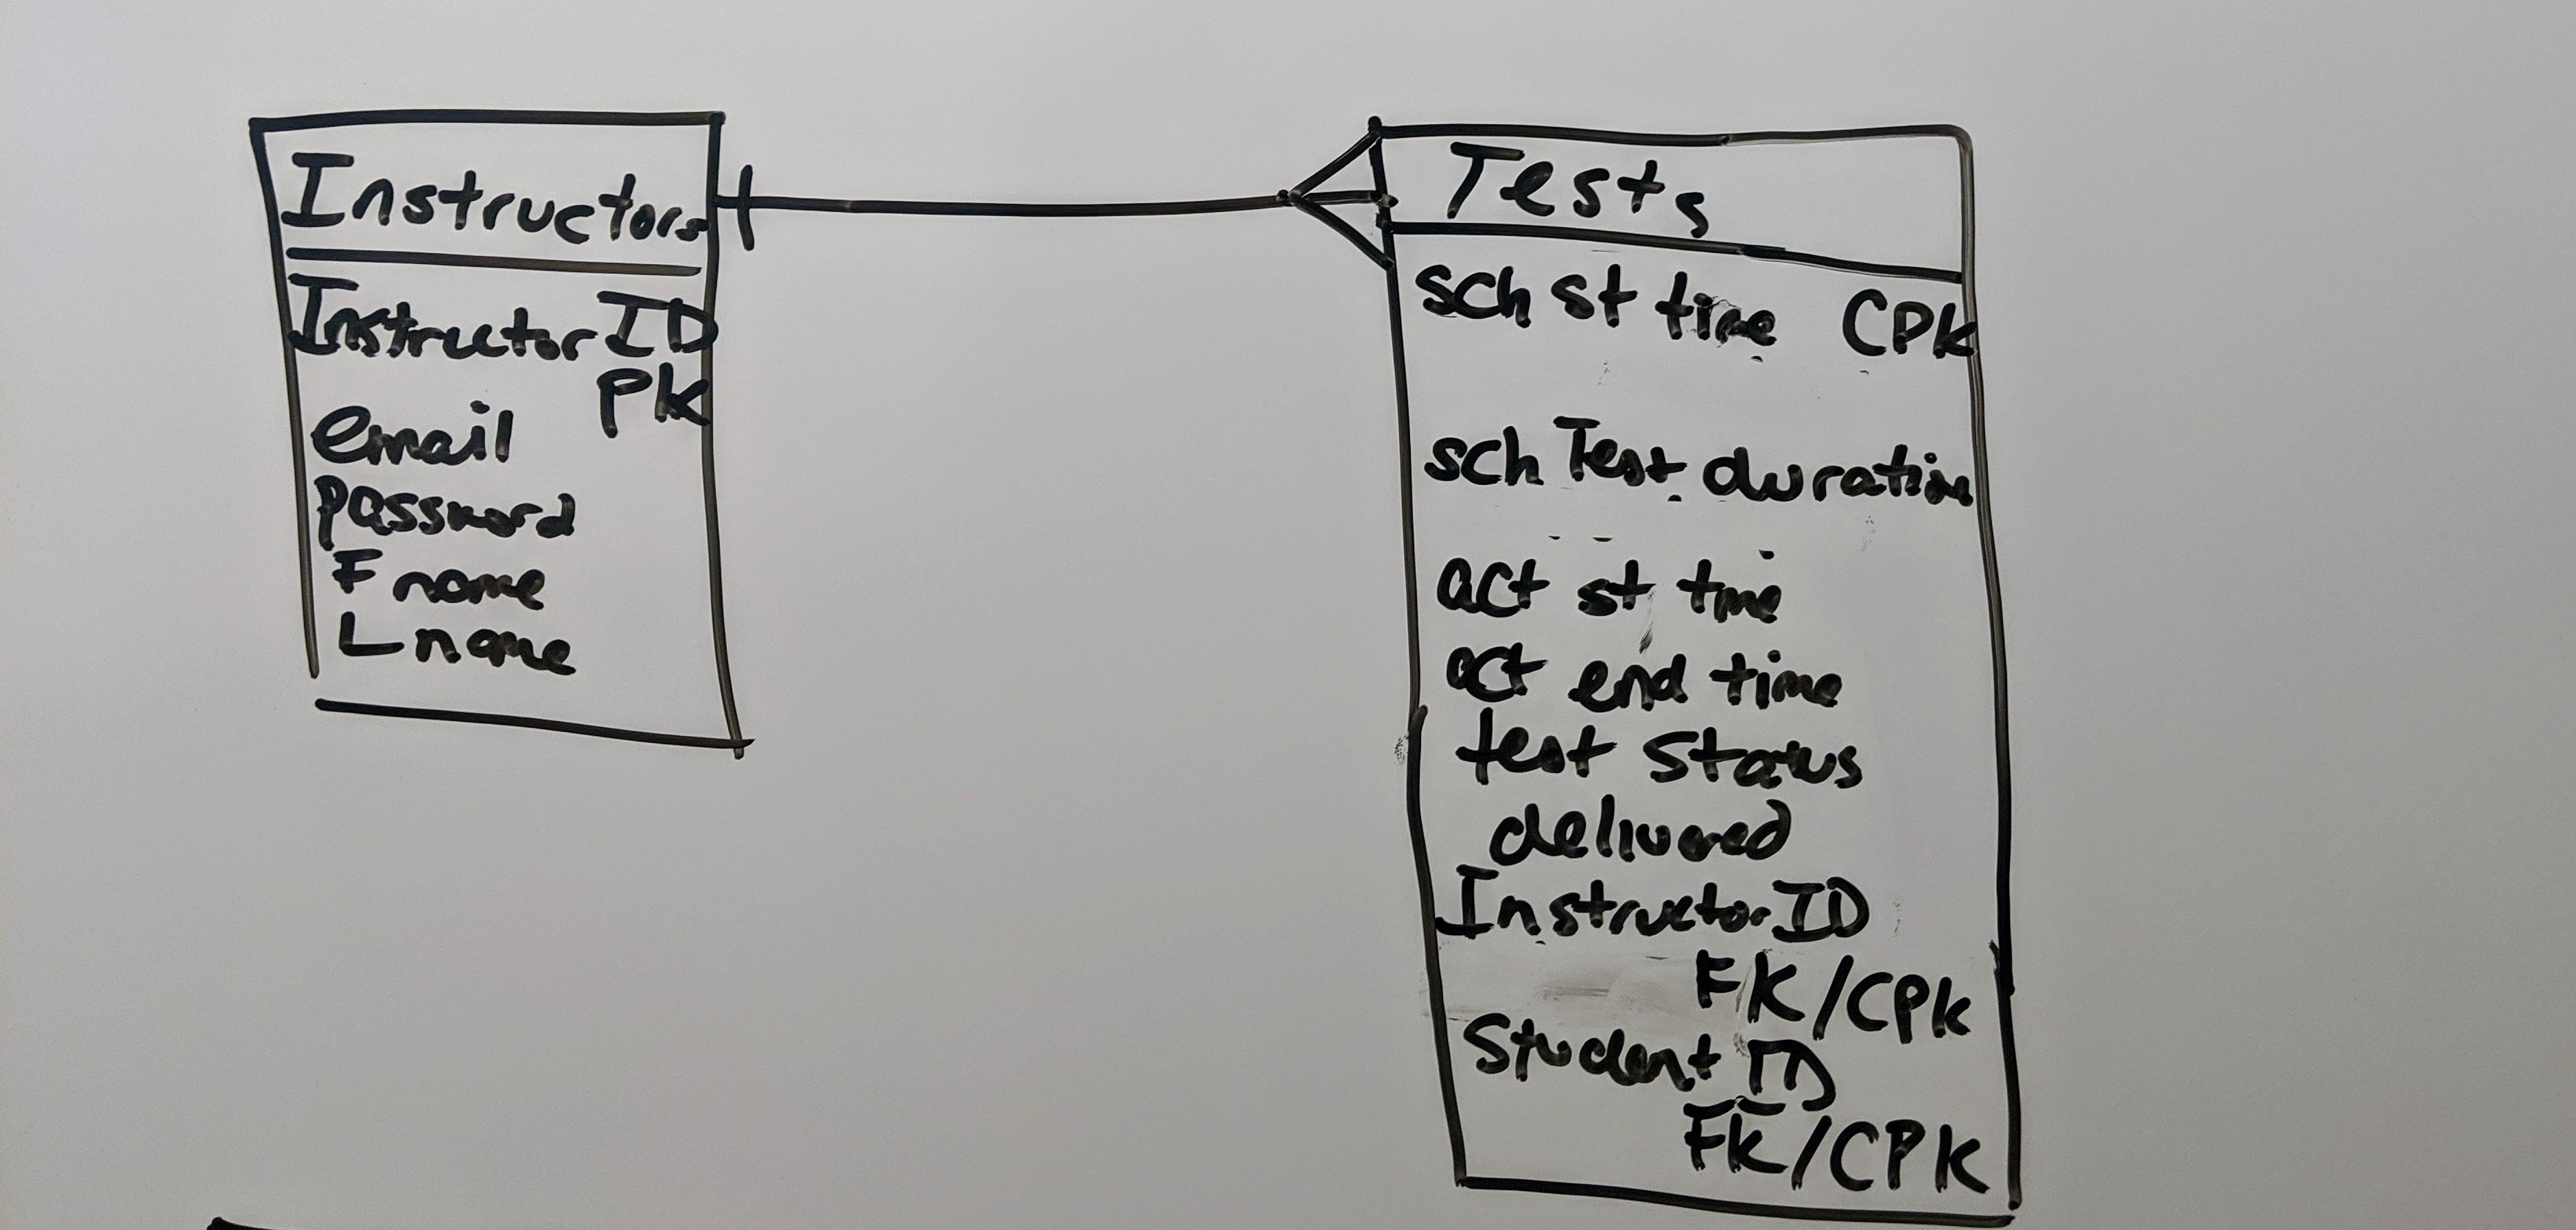 Instructors
Instructor ID
PK
email
password
F name
L name
Tests
sch st time CPK
sch Test duration
act st time
act end time
test status
delivered
Instructor ID
FK/CPK
Student ID
FK/CPK